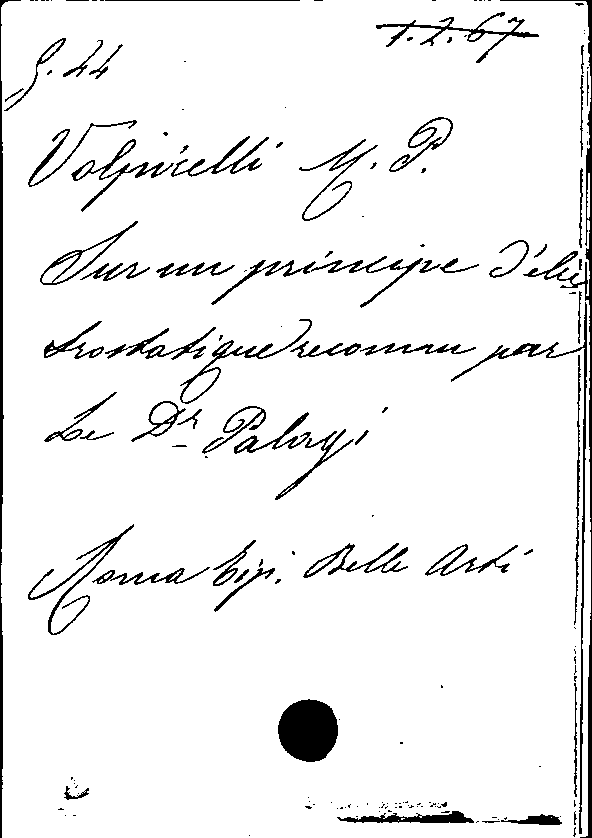 1.2.67
G. 44
Volpicelli M. P.
Sur un principe d'élec
trostatique reconnu par
Le Dr Palagi
Roma tip. Belle Arti